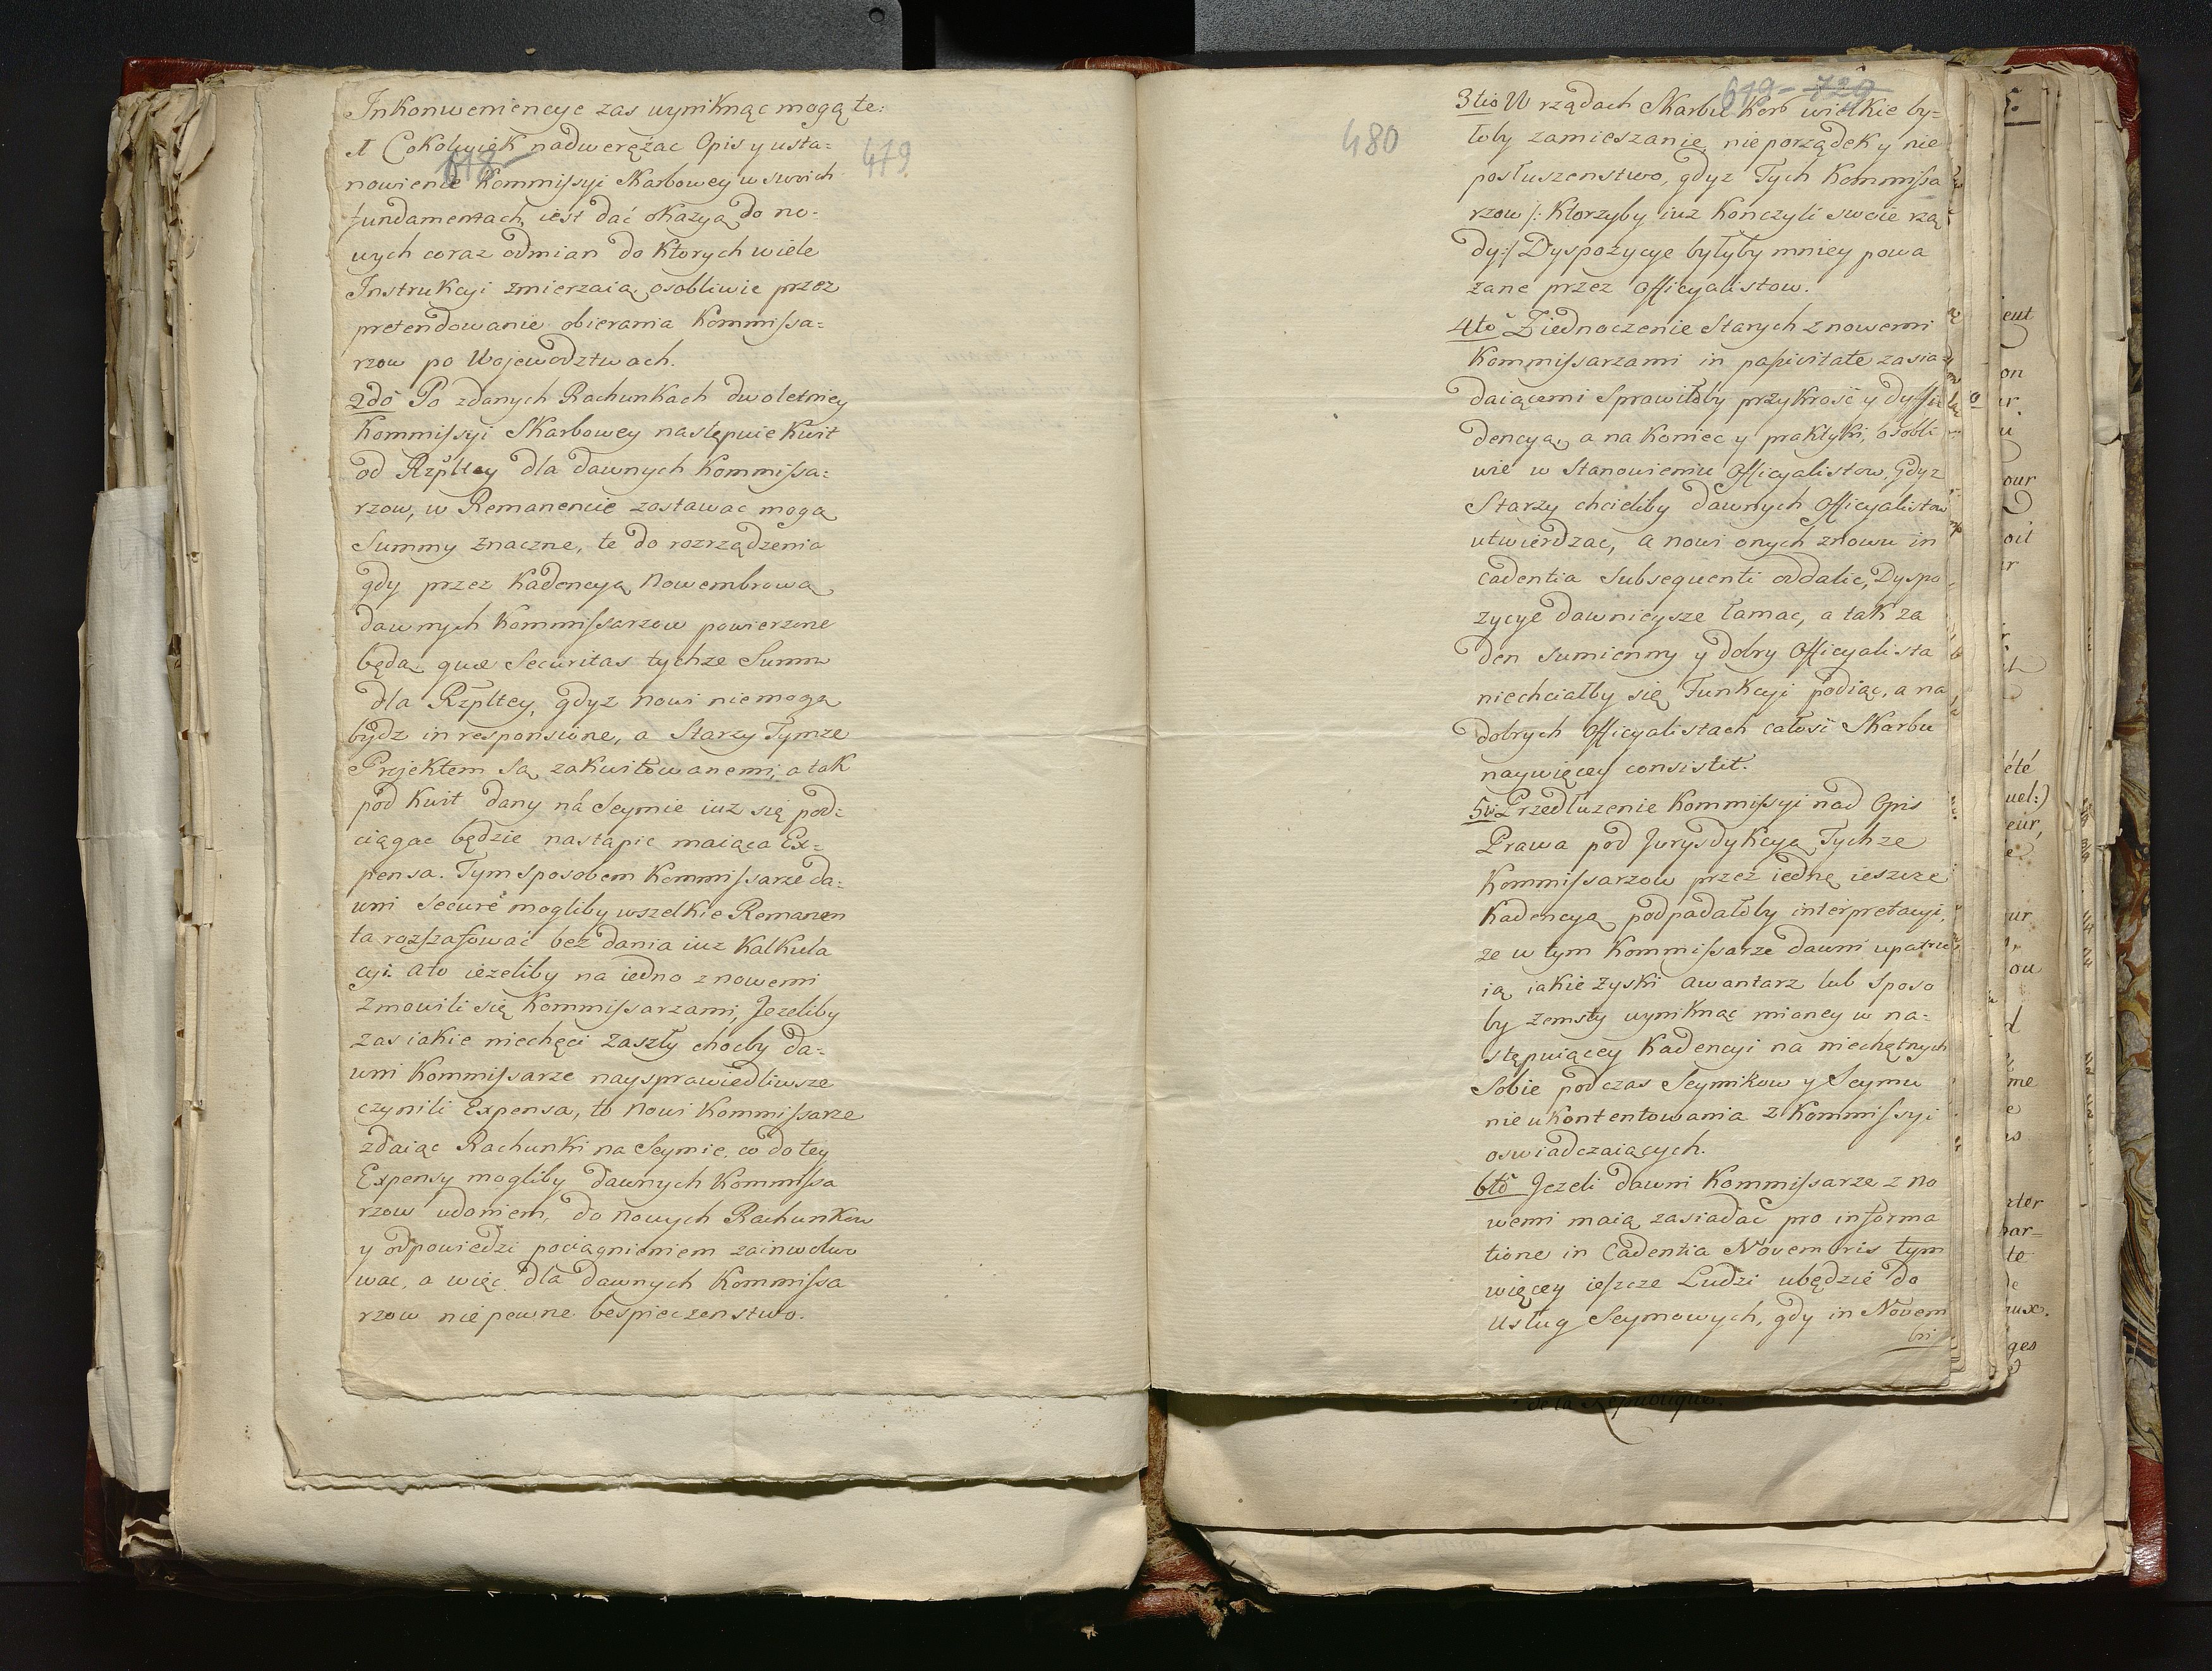 Inkonweniencye zas wyniknąc mogą te:
1 Cokolwiek nadwerężac Opis y usta=
618
479.
nowienie Kommissyi Skarbowey w swoich
fundamentach, iest dać okazyą do no-
wych coraz odmian do ktorych wiele
Instrukcyi zmierzaią, osobliwie przez
pretendowanie obierania Kommissa=
rzow po Wojewodztwach.
2do Po zdanych Rachunkach dwoletniey
Kommissyi Skarbowey następuie Kwit
od Rzpltey dla dawnych Kommissa=
rzow, w Remanencie zostawac mogą
Summy znaczne, te do rozrządzenia
gdy przez Kadencyą Nowembrową
dawnych Kommissarzow powierzone
będą, quæ Securitas tychze Summ
dla Rzpltey, gdyz nowi niemogą
bydz in responsione, a Starzy Tymze
Projektem są zakwitowanemi, a tak
pod Kwit dany ná Seymie iuz się pod=
ciągac będzie nastąpic maiąca Ex=
pensa. Tym sposobem Kommissarze da=
wni Securè mogliby wszelkie Remanen
ta rozszafować bez dania iuz Kalkula
cyi. a to iezeliby na iedno z nowemi
zmowili się Kommissarzami, Jezeliby
zas iakie niechęci zaszły choćby da=
wni Kommissarze naysprawiedliwsze
czynili Expensa, to nowi Kommissarze
zdaiąc Rachunki na Seymie, co do tey
Expensy mogliby dawnych Kommissa
rzow udaniem, do nowych Rachunkow
y odpowiedzi pociągnieniem zainwolwo
wac, a więc dla dawnych Kommissa
rzow niepewne bespieczenstwo.
619 - 729
480
3tio W rządach Skarbu Kor wielkie by=
łoby zamieszanie, nieporządek y nie
posłuszenstwo, gdyz Tych Kommissa
rzow /: Ktorzyby iuz Konczyli swoie rzą
dy:/ Dyspozycye byłyby mniey powa
zane przez Officyalistow.
4to Ziednoczenie Starych z nowemi
Kommissarzami in passivitate zasia=
daiącemi Sprawiłoby przykrość y dyffi
dencyą, a na Koniec y praktyki, osobli
wie w Stanowieniu Officyalistow, Gdyz
Starzy chcieliby dawnych Officyalistow
utwierdzac, a nowi onych znowu in
cadentia subsequenti oddalic, Dyspo
zycye dawnieysze łamac, a tak za
den sumienny y dobry Officyalista
niechciałby się Funkcyi podiąc, a na
dobrych Officyalistach całosć Skarbu
naywięcey consistit.
5to Przedłuzenie Kommissyi nad Opis
Prawa pod Jurysdykcyą Tychze
Kommissarzow przez iednę ieszcze
Kadencyą podpadałoby interpretacyi,
ze w tym Kommissarze dawni upatru
ią iakie zyski awantarz lub sposo
by zemsty wyniknąc mianey w na=
stępuiącey Kadencyi na niechętnych
Sobie podczas Seymikow y Seymu
nieukontentowania z Kommissyi
oswiadczaiących.
6to Jezeli dawni Kommissarze z no
wemi maią zasiadać pro informa
tione in Cadentia Novembris tym
więcey ieszcze Ludzi ubędzie do
usług Seymowych, gdy in Novem
bri
de la Republique.